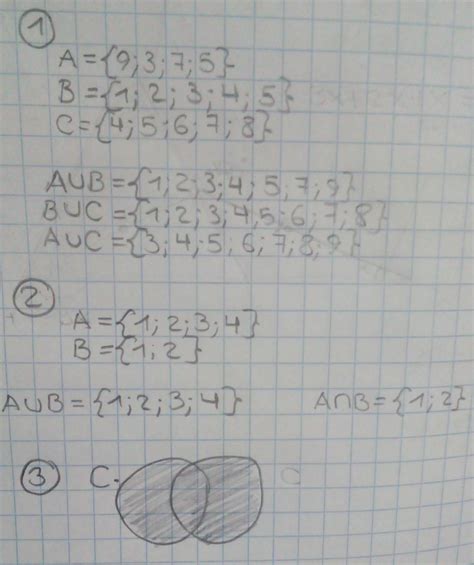 1
A={9;3;7;5}
B={1;2;3;4;5}
C={4;5;6;7;8}
A∪B={1;2;3;4;5,7;9}
B∪C={1;2;3;4,5;6;7;8}
A∪C={3;4;5,6;7;8,9}
2
A={1;2;3;4}
B={1;2}
A∪B={1;2;3,4} A∩B={1;2}
3 C.